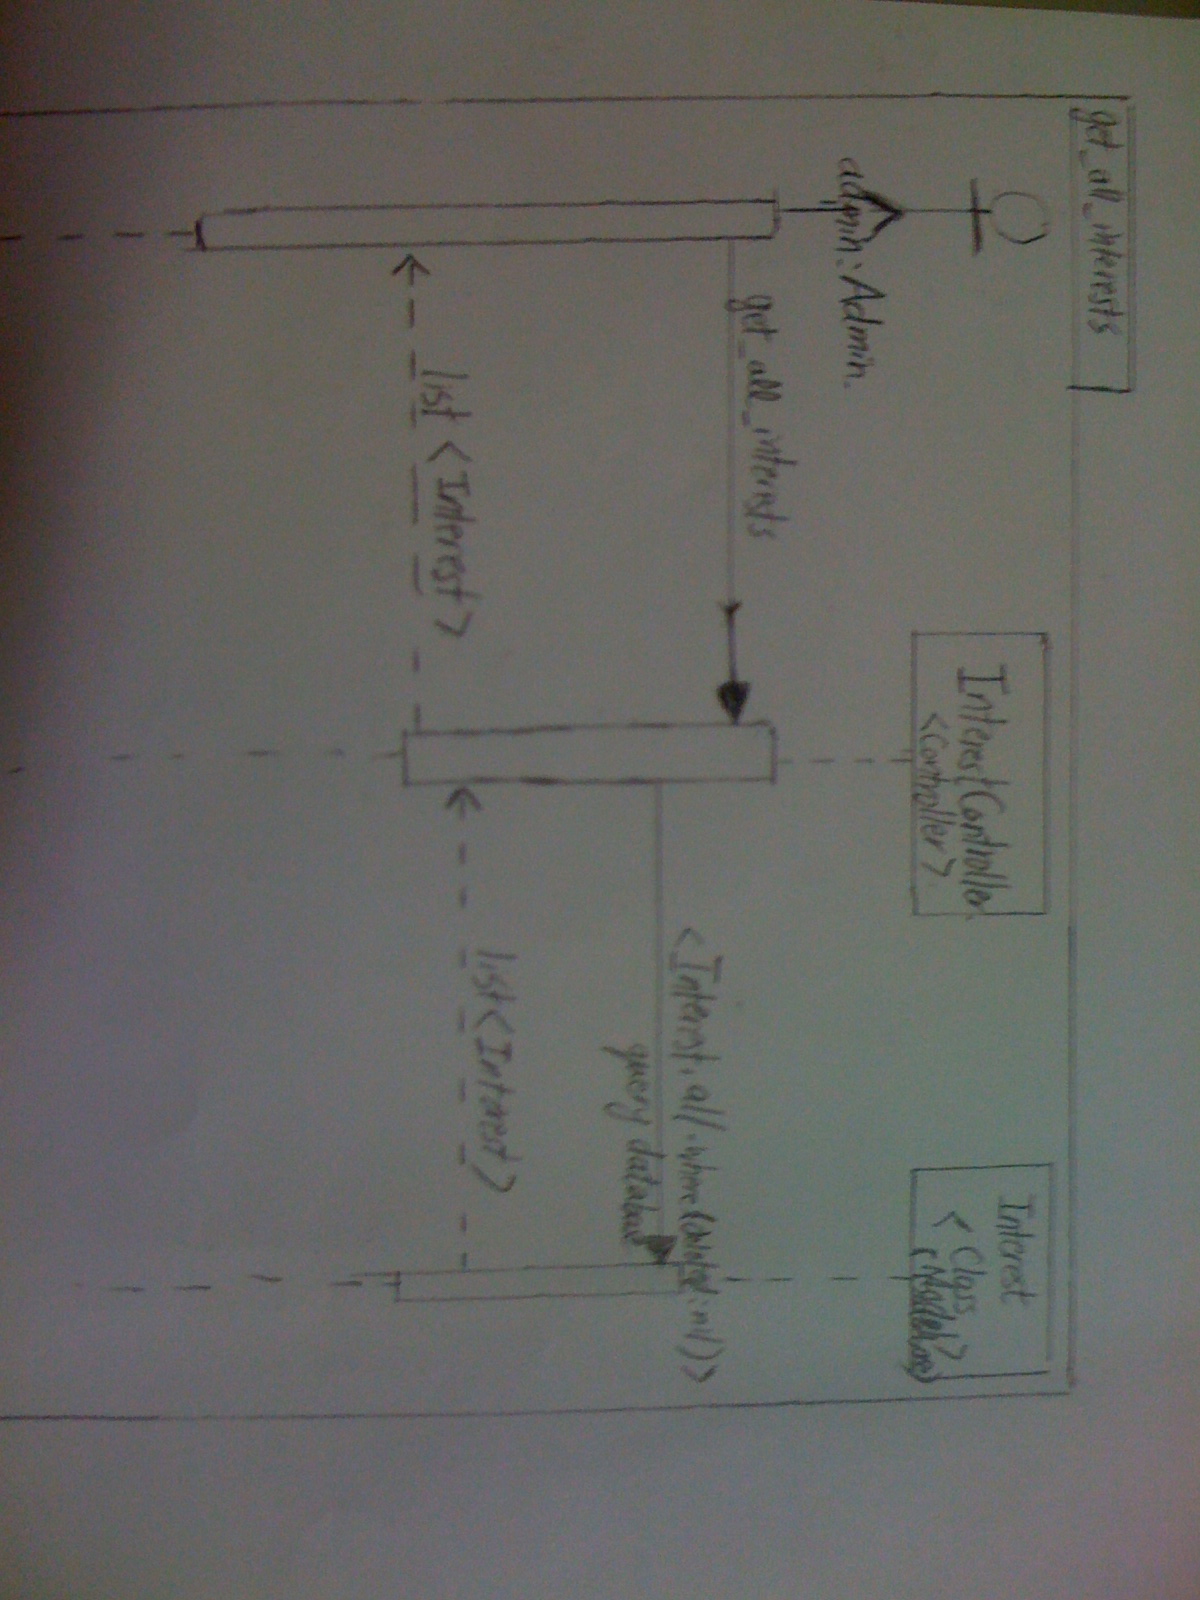 get_all_interests
InterestController
<Controller>
Interest
< Class >
admin: Admin.
get_all_interests
<Interest.all.where(deleted:nil)>
query database
list<Interest>
list <Interest>